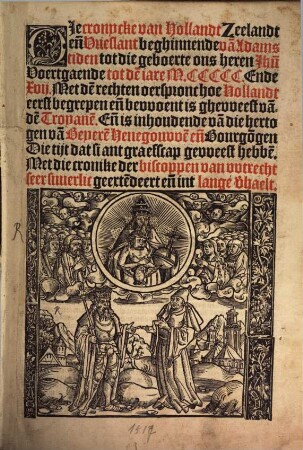 Die cronycke van Hollandt Zeelandt
eñ Vrieslant beghinnende vã Adams
tiden tot die geboerte ons heren Jhũ
Voertgaende tot dẽ iare M.CCCCC Ende
xvij. Met dẽ rechten oerspronc hoe Hollandt
eerst begrepen eñ bewoent is gheweest vã
dẽ Troyanẽ. Eñ is inhoudende vã die herto
gen vã Beyerẽ Henegouwẽ eñ Bourgõgen
Die tijt dat si ant graefscap geweest hebbẽ.
Met die cronike der biscoppen van vutrecht
seer suuerlic geextẽdeert eñ int lange vhaelt.
R
1517